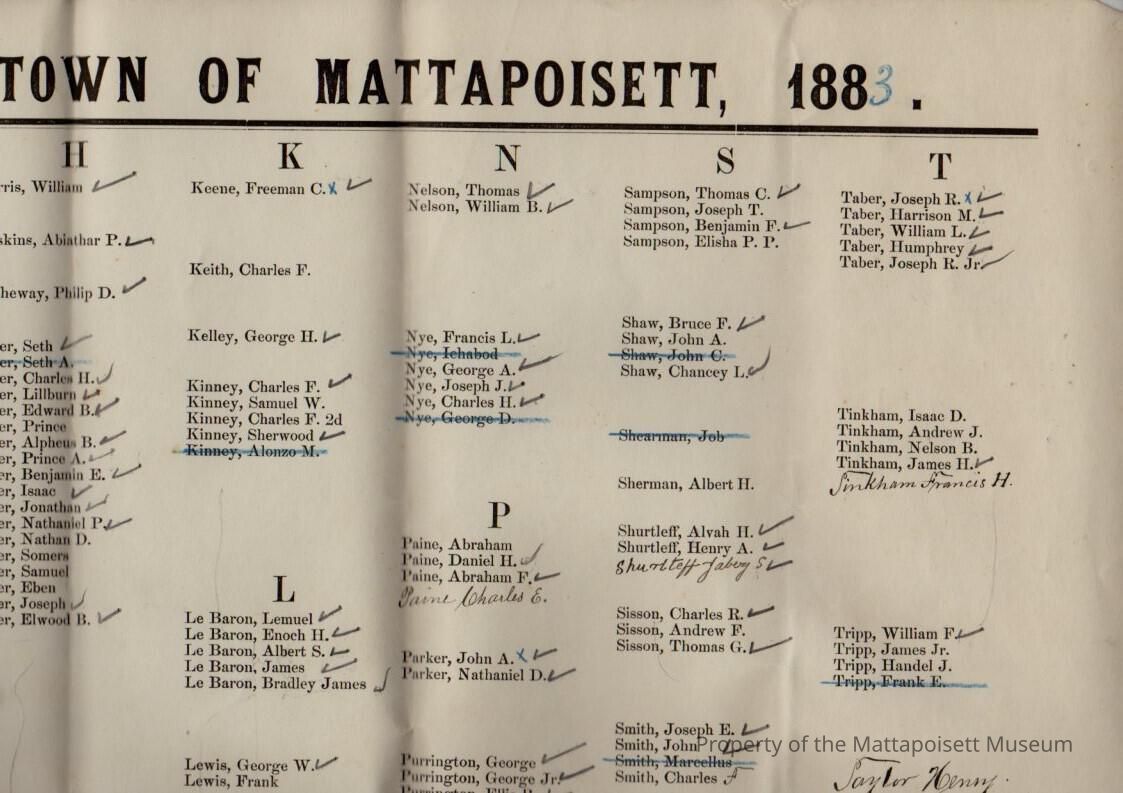 TOWN OF MATTAPOISETT, 1883.
H
ris, William
skins, Abiathar P.
heway, Philip D.
er, Seth
er, Seth A.
er, Charles H.
er, Lillburn
er, Edward B.
er, Prince
er, Alpheus B.
er, Prince A.
er, Benjamin E.
er, Isaac
er, Jonathan
er, Nathaniel P.
er, Nathan D.
er, Somers
er, Samuel
er, Eben
er, Joseph
er, Elwood B.
K
Keene, Freeman C. x
Keith, Charles F.
Kelley, George H.
Kinney, Charles F.
Kinney, Samuel W.
Kinney, Charles F. 2d
Kinney, Sherwood
Kinney, Alonzo M.
L
Le Baron, Lemuel
Le Baron, Enoch H.
Le Baron, Albert S.
Le Baron, James
Le Baron, Bradley James
Lewis, George W.
Lewis, Frank
N
Nelson, Thomas
Nelson, William B.
Nye, Francis L.
Nye, Ichabod
Nye, George A.
Nye, Joseph J.
Nye, Charles H.
Nye, George D.
P
Paine, Abraham
Paine, Daniel H.
Paine, Abraham F.
Paine Charles E.
Parker, John A. x
Parker, Nathaniel D.
Purrington, George
Purrington, George Jr.
S
Sampson, Thomas C.
Sampson, Joseph T.
Sampson, Benjamin F.
Sampson, Elisha P. P.
Shaw, Bruce F.
Shaw, John A.
Shaw, John C.
Shaw, Chancey L.
Shearman, Job
Sherman, Albert H.
Shurtleff, Alvah H.
Shurtleff, Henry A.
Shurtleff Jabez S
Sisson, Charles R.
Sisson, Andrew F.
Sisson, Thomas G.
Smith, Joseph E.
Smith, John
Smith, Marcellus
Smith, Charles F
T
Taber, Joseph R. x
Taber, Harrison M.
Taber, William L.
Taber, Humphrey
Taber, Joseph R. Jr.
Tinkham, Isaac D.
Tinkham, Andrew J.
Tinkham, Nelson B.
Tinkham, James H.
Tinkham Francis H.
Tripp, William F.
Tripp, James Jr.
Tripp, Handel J.
Tripp, Frank E.
Taylor Henry.
Property of the Mattapoisett Museum